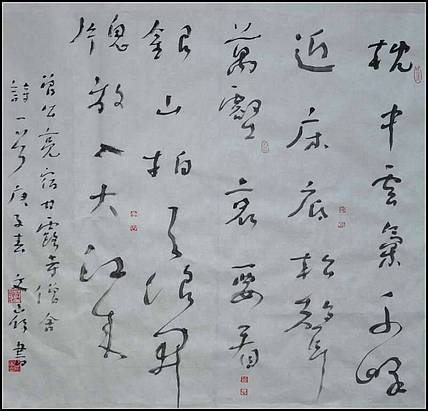 枕中雲氣千峰
近床底松聲
萬壑哀要看
銀山拍天浪開
牕放入大江來
曾公亮宿甘露寺僧舍
詩一首庚子春文書